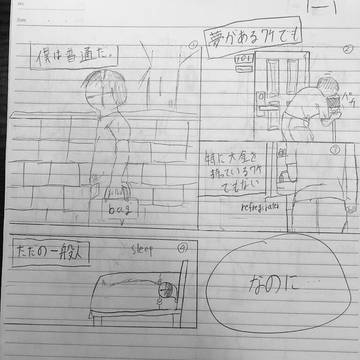 1-1
①
僕は普通だ。
bag
夢がある訳でも
②
101
③
特に大金を
持っている訳
でもない
refregirator
④
ただの一般人
sleep
なのに…